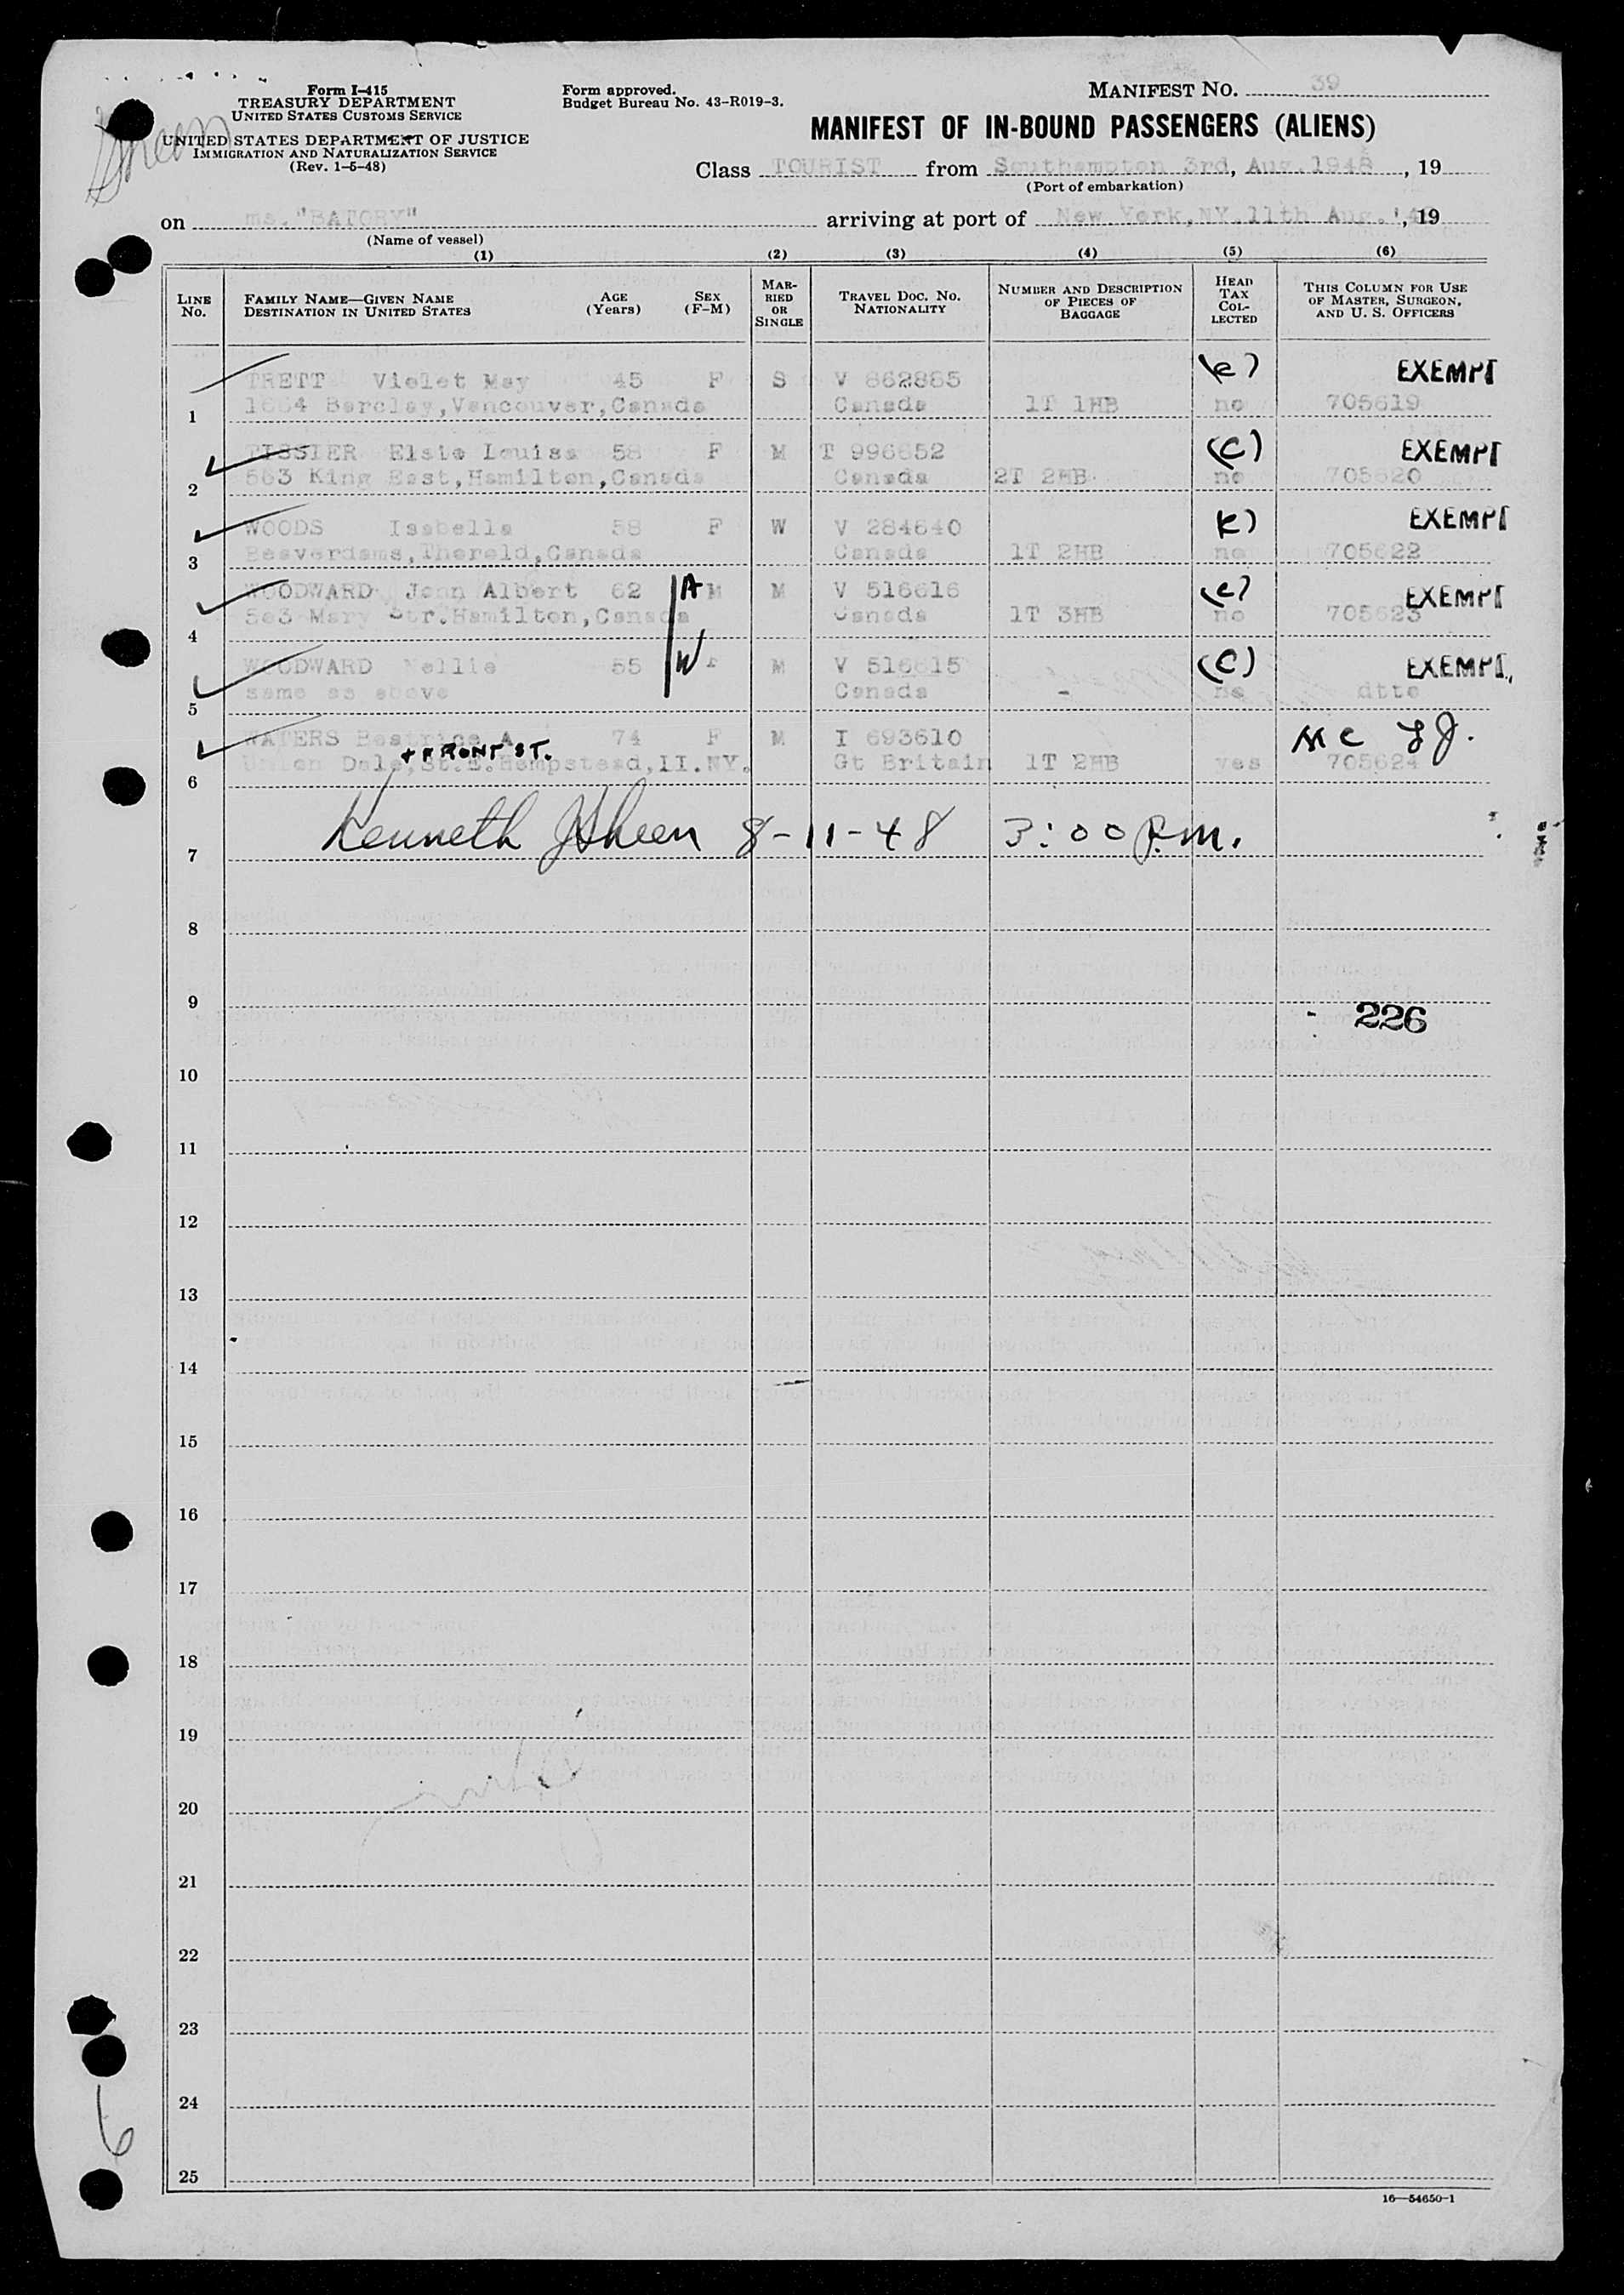 Form I-415
TREASURY DEPARTMENT
UNITED STATES CUSTOMS SERVICE
UNITED STATES DEPARTMENT OF JUSTICE
IMMIGRATION AND NATURALIZATION SERVICE
(Rev. 1-5-48)
Form approved.
Budget Bureau No. 43-R019-3.
MANIFEST NO. 39
MANIFEST OF IN-BOUND PASSENGERS (ALIENS)
Class TOURIST from Southampton 3rd, Aug. 1948, 19
(Port of embarkation)
on ms. "BATORY" arriving at port of New York, NY. 11th Aug. '48, 19
(Name of vessel)
(1) (2) (3) (4) (5) (6)
LINE No. FAMILY NAME—GIVEN NAME DESTINATION IN UNITED STATES AGE (Years) SEX (F-M) MARRIED OR SINGLE TRAVEL DOC. NO. NATIONALITY NUMBER AND DESCRIPTION OF PIECES OF BAGGAGE HEAD TAX COLLECTED THIS COLUMN FOR USE OF MASTER, SURGEON, AND U. S. OFFICERS
TRETT Violet May 45 F S V 862885 (c) EXEMPT
1 1664 Barclay, Vancouver, Canada Canada 1T 1HB no 705619
TISSIER Elsie Louisa 58 F M T 996652 (C) EXEMPT
2 563 King East, Hamilton, Canada Canada 2T 2HB no 705620
WOODS Isabella 58 F W V 284640 EXEMPT
3 Beaverdams, Thorold, Canada Canada 1T 2HB no 705622
WOODWARD John Albert 62 M M V 516616 (c) EXEMPT
4 563 Mary Str. Hamilton, Canada Canada 1T 3HB no 705623
WOODWARD Nellie 55 F M V 516615 (C) EXEMPT
5 same as above Canada - no dtto
WATERS Beatrice A 74 F M I 693610
+ FRONT ST.
6 Union Dale, St. E. Hempstead, II. NY. Gt Britain 1T 2HB yes 705624
7 Kenneth J Sheen 8-11-48 3:00 P.M.
8
9
226
10
11
12
13
14
15
16
17
18
19
20
21
22
23
24
25
6
16—54650-1